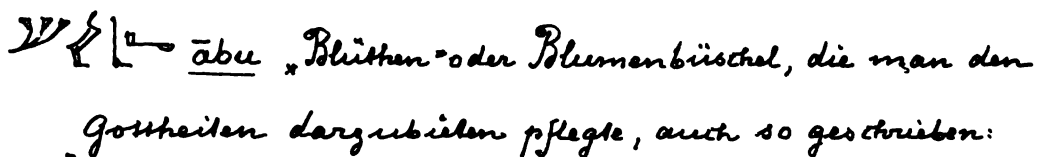 ābu „Blüthen- oder Blumenbüschel, die man den
Gottheiten darzubieten pflegte, auch so geschrieben: